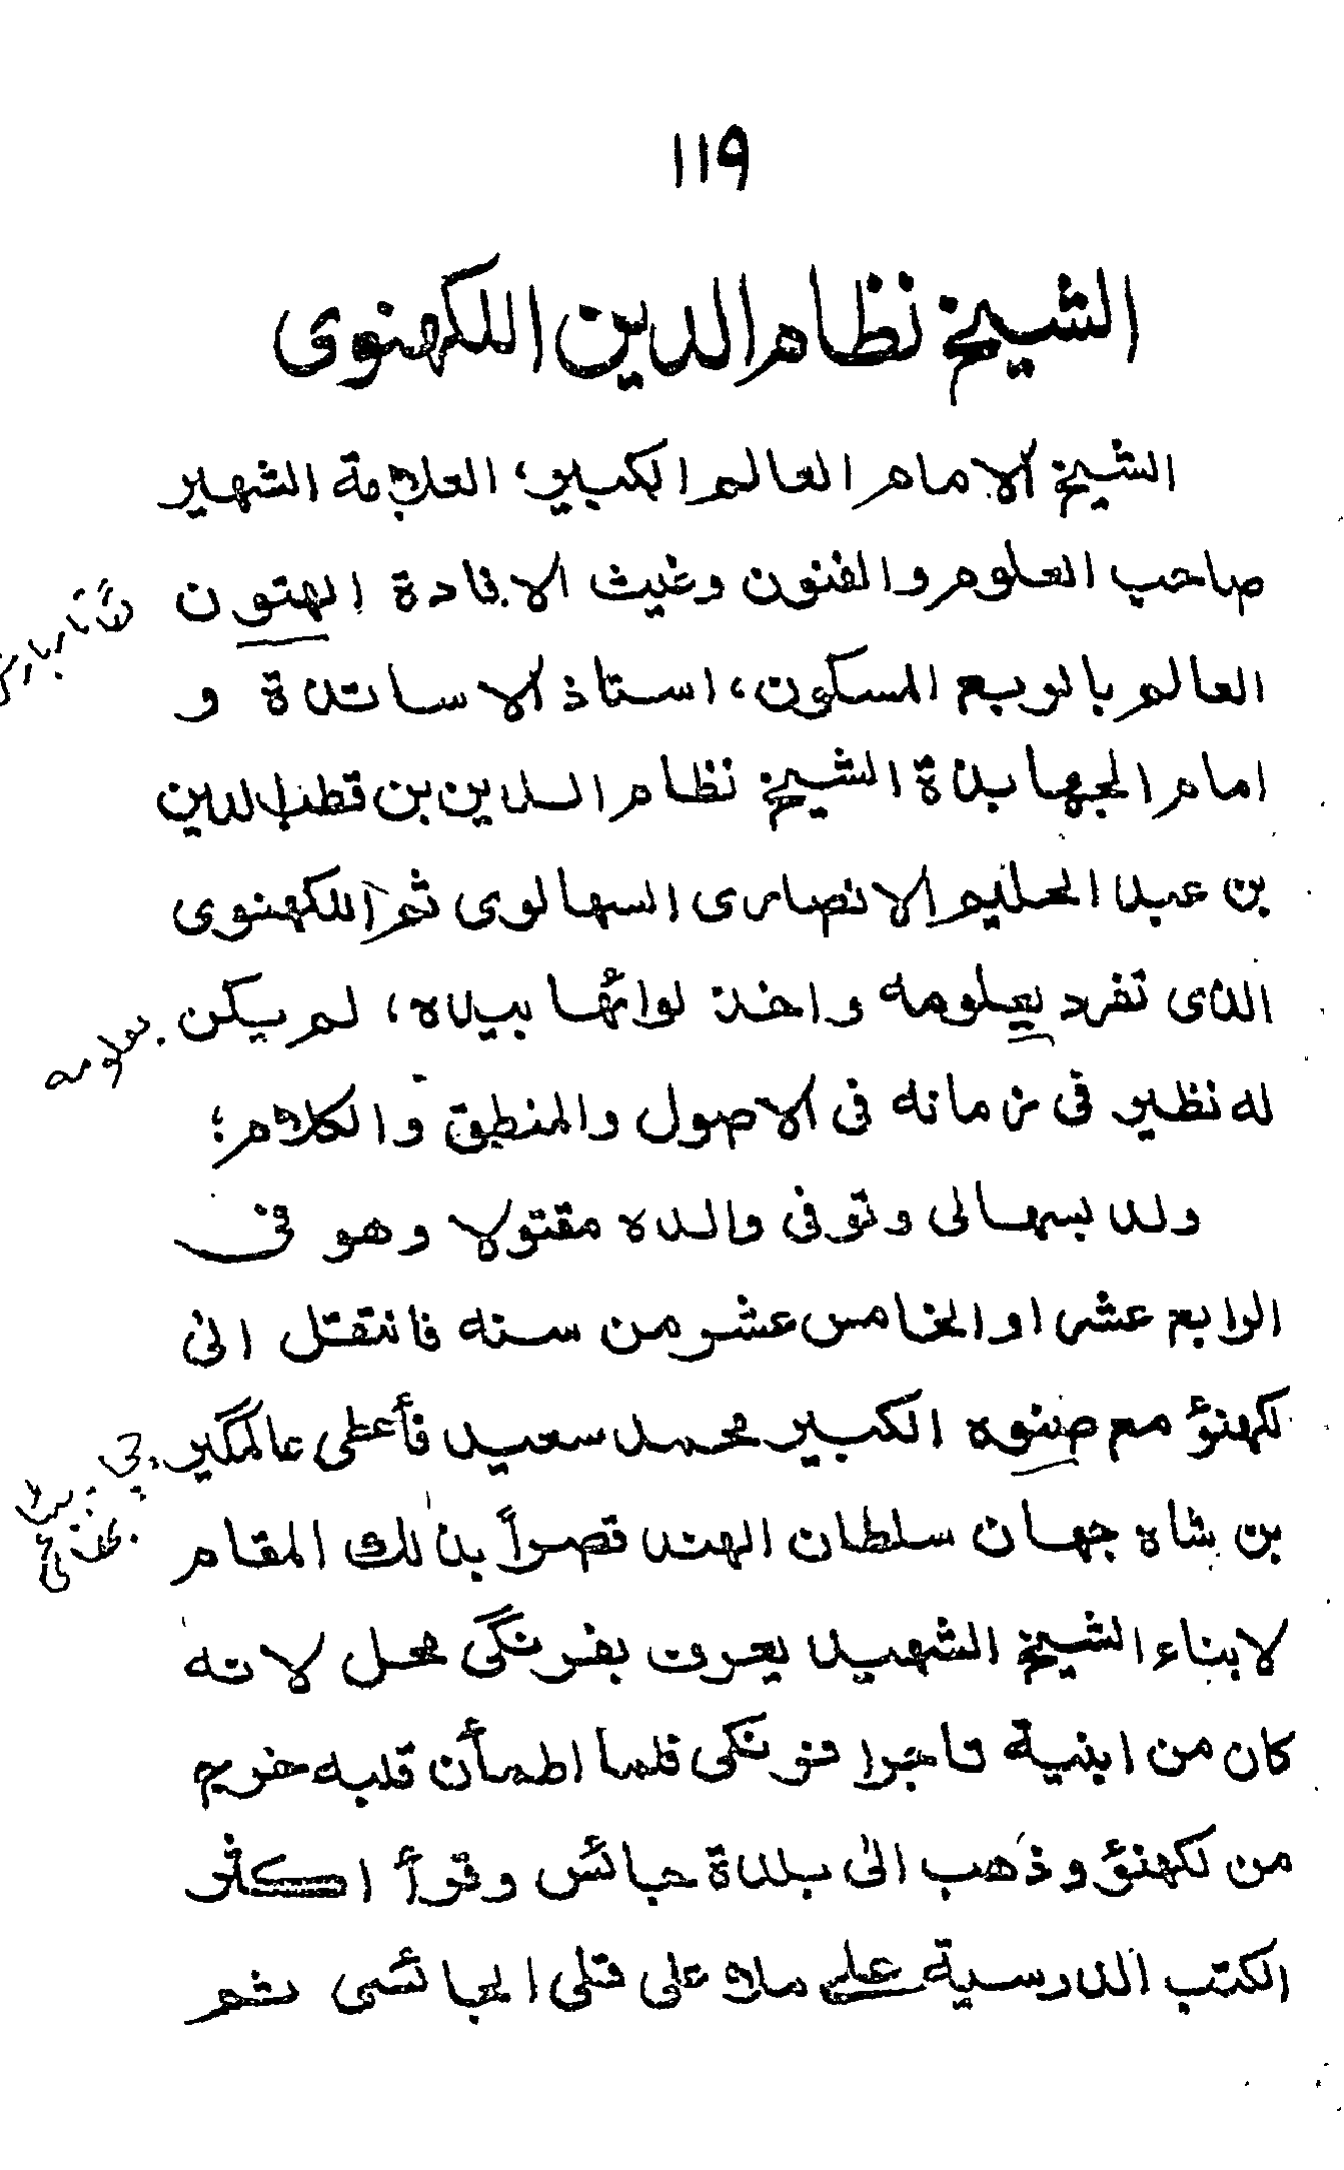 ١١٩
الشيخ نظام الدين اللكهنوى
الشيخ الامام العالم الكبير، العلامة الشهير
صاحب العلوم والفنون وغيث الافادة الهتون
العالم بالربع المسكون، استاذ الاساتذة و
امام الجهابذة الشيخ نظام الدين بن قطب الدين
بن عبد الحليم الانصارى السهالوى ثم اللكهنوى
الذى تفرد بعلومه واخذ لوائها بيده، لم يكن
له نظير فى زمانه فى الاصول والمنطق والكلام؛
ولد بسهالى وتوفى والده مقتولا وهو فى
الرابع عشر او الخامس عشر من سنه فانتقل الى
لكهنؤ مع صنوه الكبير محمد سعيد فأعطى عالمگير
بن شاه جهان سلطان الهند قصراً بذلك المقام
لابناء الشيخ الشهيد يعرف بفرنگى محل لانه
كان من ابنية تاجرا فرنگى فلما اطمأن قلبه خرج
من لكهنؤ وذهب الى بلدة جائس وقرأ اكثر
الكتب الدرسية على ملا على قلى الجائسى ثم
بعلومه